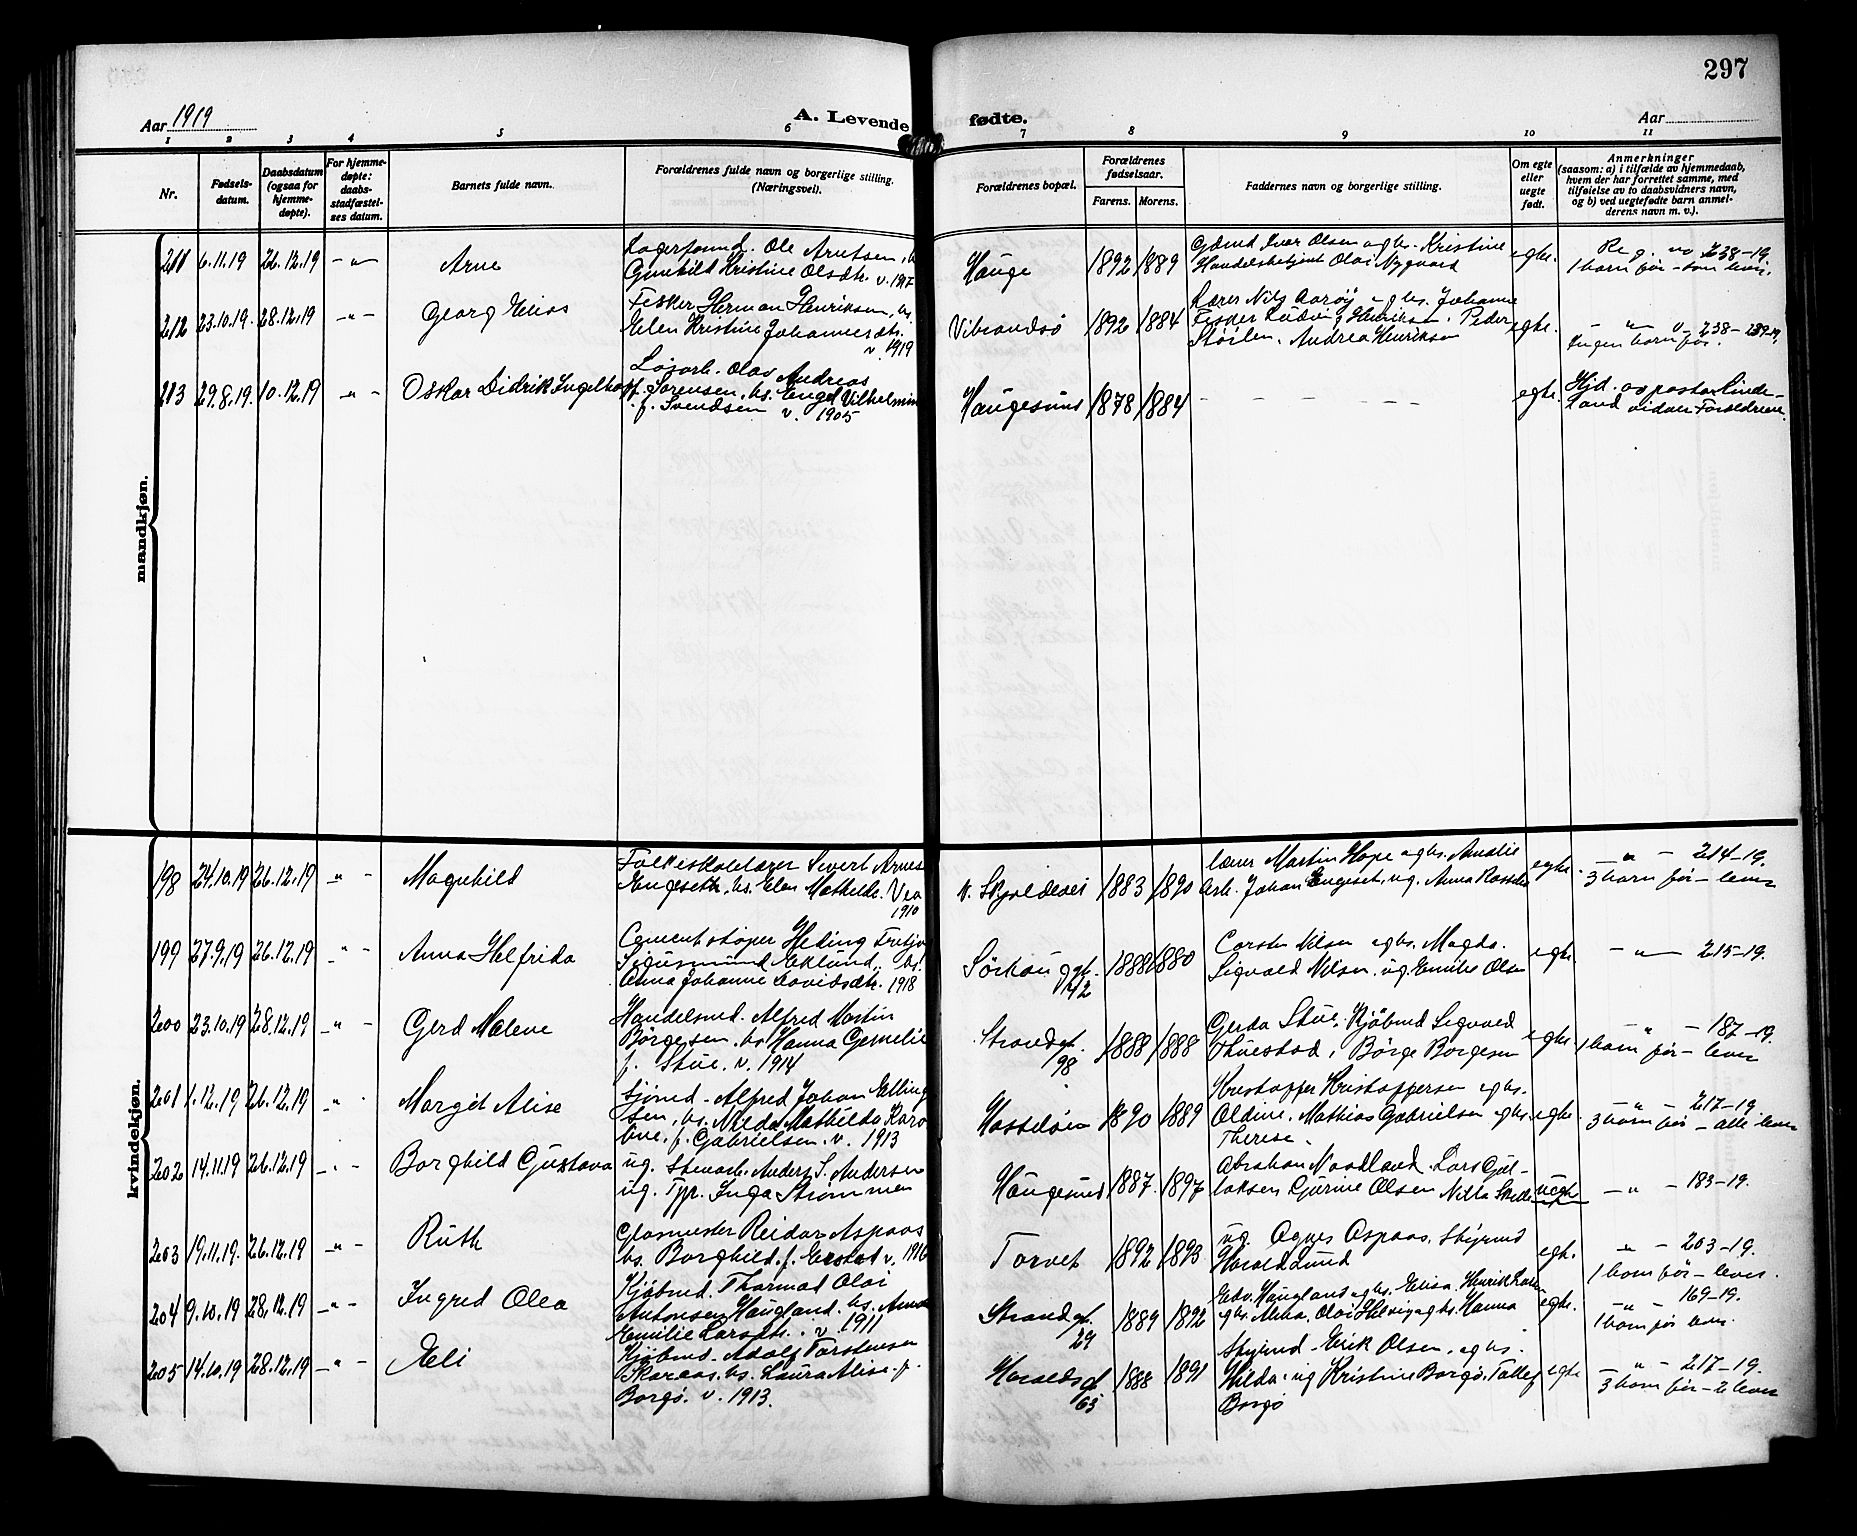 297
Aar 1919
A. Levende fødte.
Aar
1 2 3 4 5 6 7 8 9 10 11
Nr.
Fødsels-
datum.
Daabsdatum
(ogsaa for
hjemme-
døpte).
For hjemme-
døpte:
daabs-
stadfæstel-
ses datum.
Barnets fulde navn.
Forældrenes fulde navn og borgerlige stilling.
(Næringsvei).
Forældrenes bopæl.
Forældrenes
fødselsaar.
Farens. Morens.
Faddernes navn og borgerlige stilling.
Om egte
eller
uegte
født.
Anmerkninger
(saasom: a) i tilfælde av hjemmedaab,
hvem der har forrettet samme, med
tilføielse av to daabsvidners navn,
og b) ved uegtefødte barn anmel-
derens navn m. v.).
mandkjøn.
211 6.11.19 26.12.19 -"- Arne
Ole Arntsen,
Gunhild Kristine Olsdtr. v. 1917
Hauge 1892 1889
Iver Olsen og hs. Kristine
Handelsbetjent Olai Nygaard
egte.
Reg. no 238-19.
1 barn før - lever.
212 23.10.19 28.12.19 -"- Georg Elias
Fisker Herman Henriksen, hs.
Elen Kristine Johannesdtr.
v. 1919
Vibrandsø 1892 1884
Lærer Nils Aarøy og hs. Johanne
Fisker Ludvig Henriksen. Peder
Andrea Henriksen
egte.
-"- 238-
Ingen barn før.
213 29.8.19 10.12.19 -"- Oskar Didrik Ingolf
Løsarb. Olav Andreas
Sørensen, hs. Engel Vilhelmine
f. Svendsen v. 1905
Haugesund 1878 1884
- - - - - -
egte.
Hjd. av pastor Linde-
land vidner Forældrene.
kvindekjøn.
198 24.10.19 26.12.19 -"- Magnhild
Folkeskolelærer Sivert Arnes
Engeseth, hs. Elen Mathilde Vea
1910
V. Skjoldevei 1883 1890
lærer Martin Hope og hs. Amalie
Arb. Johan Engeset, ug. Anna
egte.
-"- 214-19.
3 barn før - lever
199 27.9.19 26.12.19 -"- Anna Helfrida
Cementstøper Heding Fritjof
Sigusmund Eklund, hs.
Anna Johanne Davidsdtr. 1918
Sørhauggt.
142
1888 1880
Carsten Nilsen og hs. Magda.
Sigvald Nilsen, ug. Emilie Olsen
egte.
-"- 215-19.
200 23.10.19 28.12.19 -"- Gerd Malene
Handelsmd. Alfred Martin
Børgesen, hs. Hanna Cornelie
f. Stue. v. 1914
Strandgt.
98
1888 1888
Gerda Stue, Kjøbmd Sigvald
Thuestad, Børge Børgesen
egte.
-"- 187-19.
1 barn før - lever
201 1.12.19 26.12.19 -"- Margit Alise
Sjømd. Alfred Johan Elling
sen, hs. Milda Mathilda Karo
line, f. Gabrielsen. v. 1913
Hasseløen 1890 1889
Kristoffer Kristoffersen og hs.
Oldine. Mathias Gabrielsen og hs.
Therese.
egte.
-"- 217-19
3 barn før - alle lever
202 14.11.19 26.12.19 -"- Borghild Gustava
ug. Stenarb. Anders S. Andersen
ug. Tjp. Inga Strømmen
Haugesund 1887 1897
Abraham Nordland. Lars Gul-
laksen Gurine Olsen
uegte
-"- 183-19.
203 19.11.19. 26.12.19 -"- Ruth
Glasmester Reidar Aspaas
hs. Borghild f. v. 1916
Torvet 1892 1893
ug. Agnes Aspaas. Styrmd
Harald Lund
egt.
-"- 203-19.
1 barn før - lever.
204 9.10.19 28.12.19 -"- Ingrid Olea
Kjøbmd. Thormod Olai
Antonsen Haugland. hs. Anna
Emilie Larsdtr. v. 1911
Strandgt.
29
1889 1892
Edv. Haugland og hs. Elisa. Henrik
og hs. Anna, Olai og hs. Hanna
egte.
-"- 169-19.
1 barn før lever.
205 14.10.19 28.12.19 -"- Eli
Kjøbmd. Adolf Torstensen
Skaraas. hs. Laura Alise f.
Borgø. v. 1913.
Haraldsgt
63
1888 1891
Styrmd. Erik Olsen og hs.
Hilda, ug Kristine Borgø. Tallef
Borgø
egte
-"- 217-19.
3 barn før - 2 lever